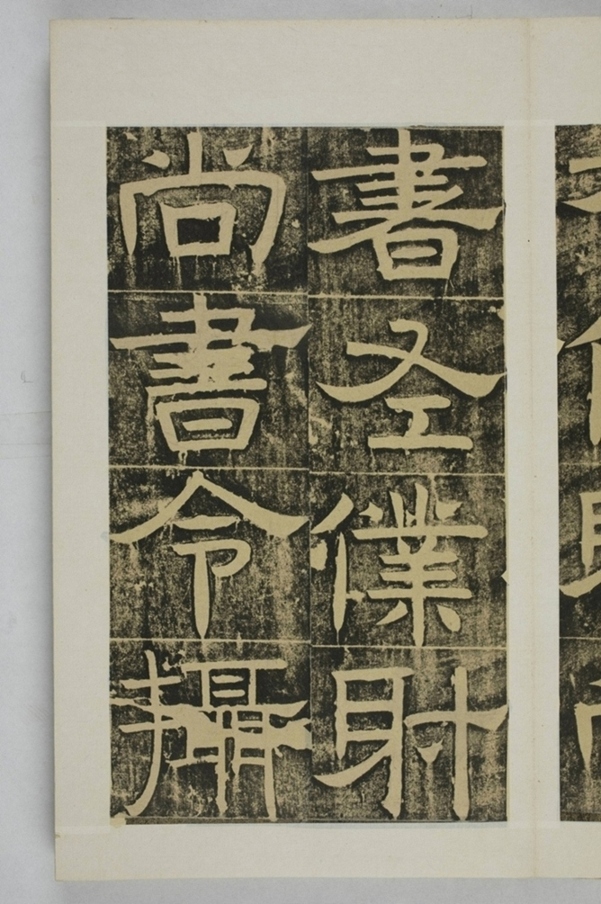 書左僕射
尚書令攝